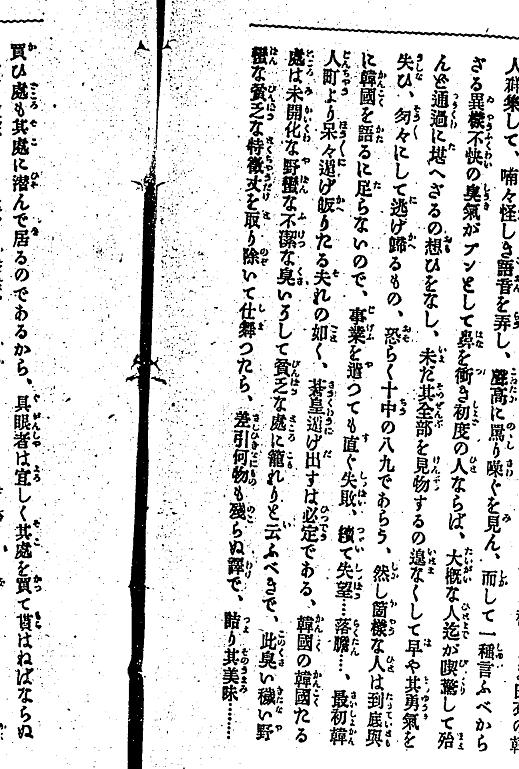 人群集して、喃々怪しき語音を弄し、聲高に罵り噪ぐを見ん、而して一種言ふべから
ざる異樣不快の臭氣がプンとして鼻を衝き初度の人ならば、大概な人迄が喫驚して殆
んど通過に堪へざるの想ひをなし、未だ其全部を見物するの遑なくして早や其勇氣を
失ひ、匆々にして逃げ歸るもの、恐らく十中の八九であらう、然し箇樣な人は到底與
に韓國を語るに足らないので、事業を遣つても直ぐ失敗、續て失望……落膽……、最初韓
人町より呆々逃げ皈りたる夫れの如く、蒼皇逃げ出すは必定である、韓國の韓國たる
處は未開化な野蠻な不潔な臭いろして貧乏な處に籠れりと云ふべきで、此臭い穢い野
蠻な貧乏な特徴丈を取り除いて仕舞つたら、差引何物も殘らぬ譯で、詰り其美味………
買ひ處も其處に潜んで居るのであるから、具眼者は宜しく其處を買て貰はねばならぬ